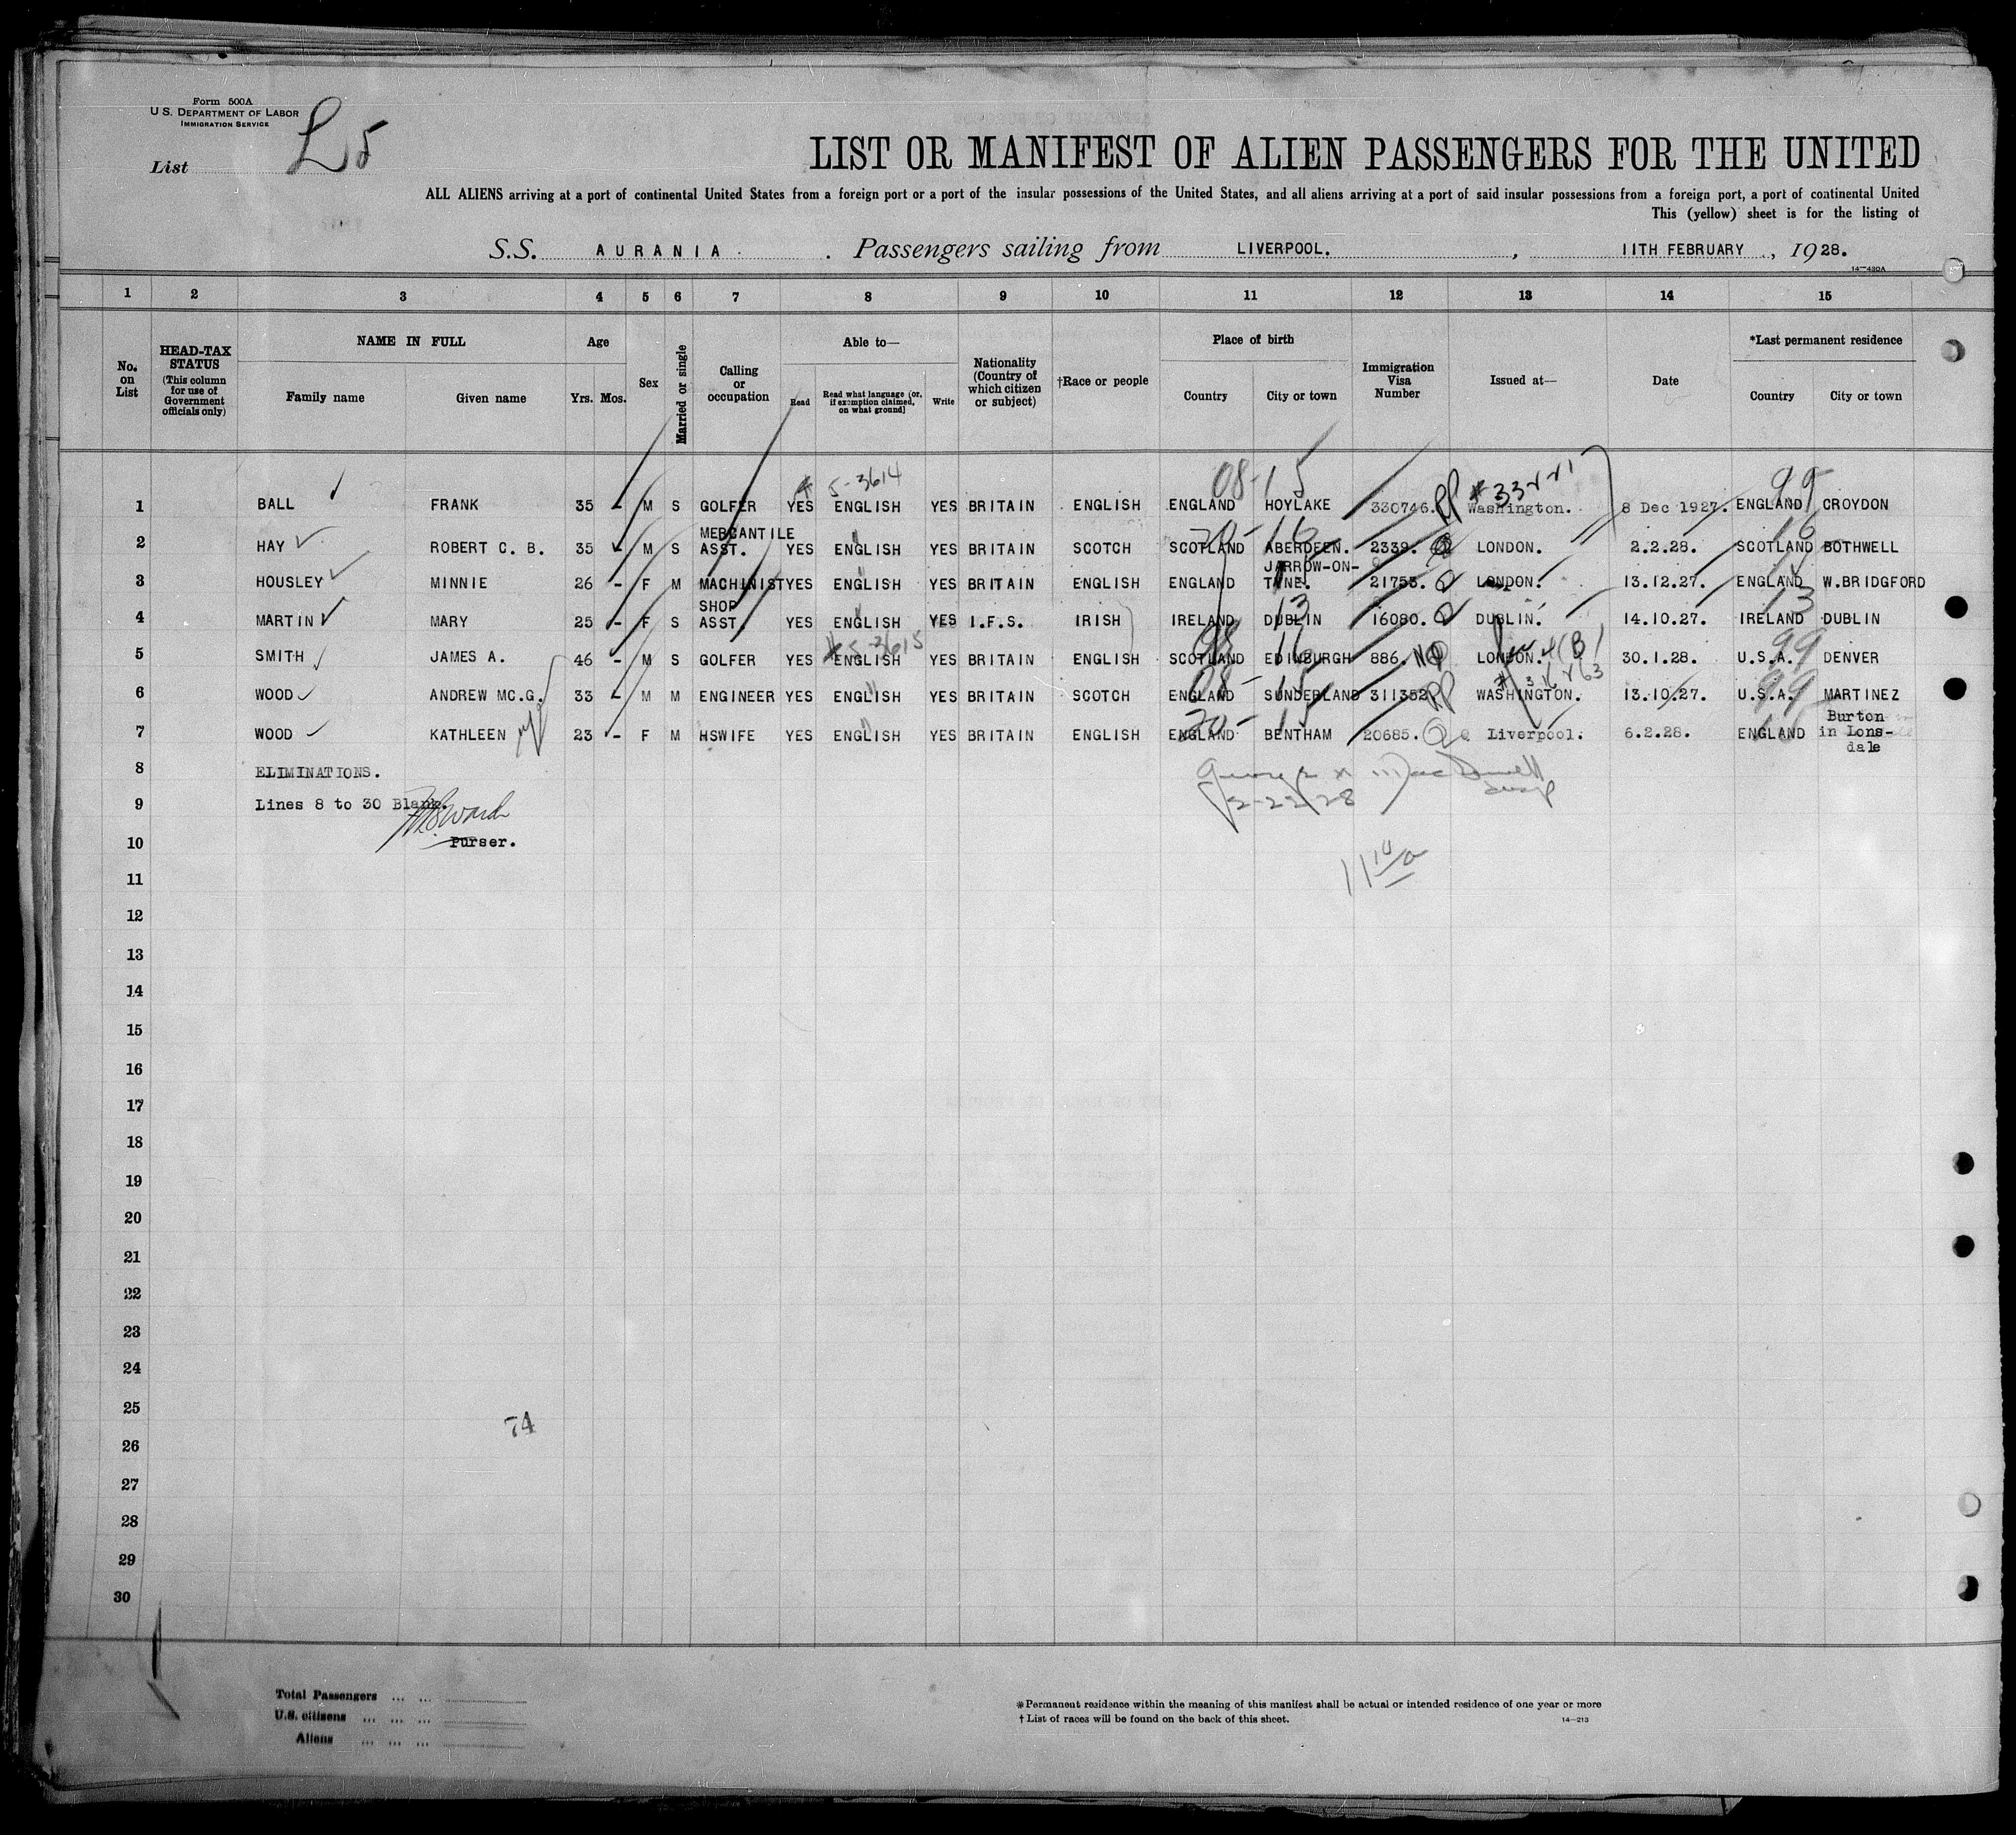 Form 500A
U.S. DEPARTMENT OF LABOR
IMMIGRATION SERVICE
List L5
LIST OR MANIFEST OF ALIEN PASSENGERS FOR THE UNITED
ALL ALIENS arriving at a port of continental United States from a foreign port or a port of the insular possessions of the United States, and all aliens arriving at a port of said insular possessions from a foreign port, a port of continental United
This (yellow) sheet is for the listing of
S.S. AURANIA. Passengers sailing from LIVERPOOL., 11TH FEBRUARY, 1928.
14—430A
1 2 3 4 5 6 7 8 9 10 11 12 13 14 15
No. on List
HEAD-TAX STATUS (This column for use of Government officials only)
NAME IN FULL
Family name Given name
Age
Yrs. Mos.
Sex
Married or single
Calling or occupation
Able to—
Read
Read what language (or, if exemption claimed, on what ground)
Write
Nationality (Country of which citizen or subject)
†Race or people
Place of birth
Country City or town
Immigration Visa Number
Issued at—
Date
*Last permanent residence
Country City or town
5-3614 08-15 99
1 BALL FRANK 35 - M S GOLFER YES ENGLISH YES BRITAIN ENGLISH ENGLAND HOYLAKE 330746. Washington. 8 Dec 1927. ENGLAND CROYDON
2 HAY ROBERT C. B. 35 - M S MERCANTILE ASST. YES ENGLISH YES BRITAIN SCOTCH SCOTLAND ABERDEEN. 2339. LONDON. 2.2.28. SCOTLAND BOTHWELL
3 HOUSLEY MINNIE 26 - F M MACHINIST YES ENGLISH YES BRITAIN ENGLISH ENGLAND JARROW-ON-TYNE. 21753. LONDON. 13.12.27. ENGLAND W.BRIDGFORD
4 MARTIN MARY 25 - F S SHOP ASST. YES ENGLISH YES I.F.S. IRISH IRELAND DUBLIN 16080. DUBLIN. 14.10.27. IRELAND DUBLIN
5-3615
5 SMITH JAMES A. 46 - M S GOLFER YES ENGLISH YES BRITAIN ENGLISH SCOTLAND EDINBURGH 886. LONDON. 30.1.28. U.S.A. DENVER
6 WOOD ANDREW MC.G. 33 - M M ENGINEER YES ENGLISH YES BRITAIN SCOTCH ENGLAND SUNDERLAND 311352 WASHINGTON. 13.10.27. U.S.A. MARTINEZ
7 WOOD KATHLEEN 23 - F M HSWIFE YES ENGLISH YES BRITAIN ENGLISH ENGLAND BENTHAM 20685. Liverpool. 6.2.28. ENGLAND Burton in Lons-dale
8 ELIMINATIONS.
9 Lines 8 to 30 Blank.
2-22/28
10 Purser.
11
12
13
14
15
16
17
18
19
20
21
22
23
24
25
74
26
27
28
29
30
Total Passengers ... ...
U.S. citizens ... ... ...
Aliens ... ... ...
*Permanent residence within the meaning of this manifest shall be actual or intended residence of one year or more
† List of races will be found on the back of this sheet.
14—213